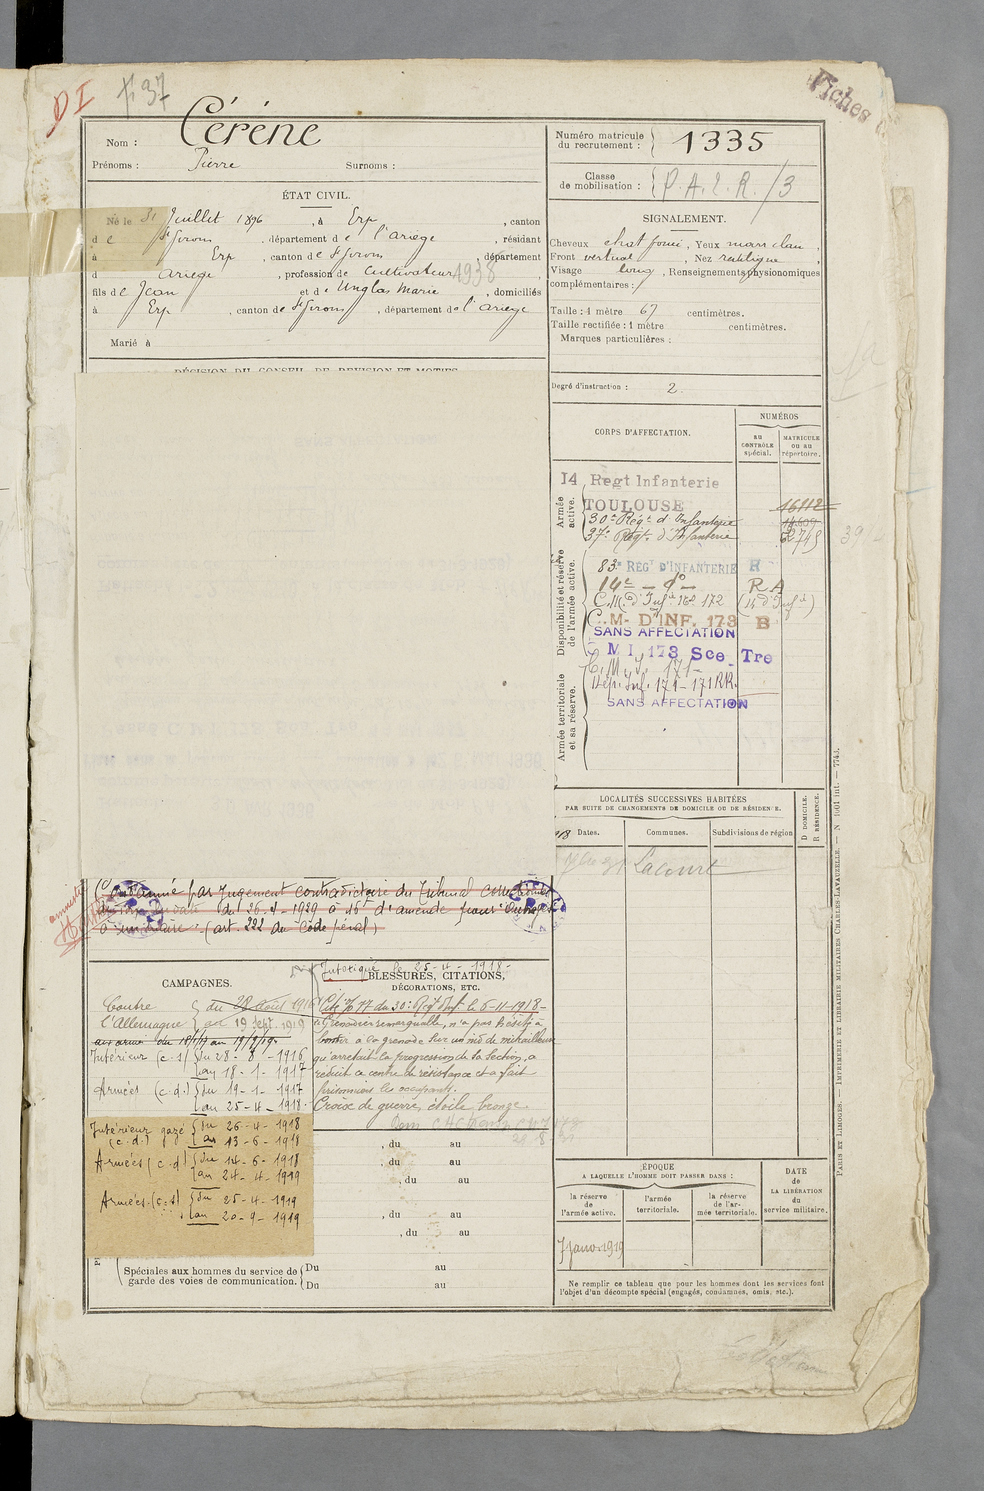 DI
Fiches
Nom : Cérène
Prénoms : Pierre Surnoms :
ÉTAT CIVIL.
Né le 31 Juillet 1896, à Erp, canton
de St Girons, département de l'Ariège, résidant
à Erp, canton de St Girons, département
d Ariège, profession de Cultivateur 1938
fils de Jean et de Unglas Marie, domiciliés
à Erp, canton de St Girons, département de l'Ariège
Marié à
DÉCISION DU CONSEIL DE REVISION ET MOTIFS.
Numéro matricule
du recrutement : 1335
Classe
de mobilisation : P.A.E.R./3
SIGNALEMENT.
Cheveux chat foncé, Yeux marr clair,
Front vertical, Nez rectiligne,
Visage long, Renseignements physionomiques
complémentaires :
Taille : 1 mètre 67 centimètres.
Taille rectifiée : 1 mètre centimètres.
Marques particulières :
Degré d'instruction : 2
CORPS D'AFFECTATION.
NUMÉROS
AU CONTRÔLE spécial.
MATRICULE ou au répertoire.
Armée active.
14 Regt Infanterie
TOULOUSE 16112
30e Régt d'Infanterie
37e Régt d'Infanterie
Disponibilité et réserve de l'armée active.
83e REGt D'INFANTERIE R
14e — do — RA
C.M. d'Infie No 172 (14 d'Infie)
C. M- D'INF. 173 B
SANS AFFECTATION
M I 173 Sce Tre
Armée territoriale et sa réserve.
C. M. I. 171-
Dép. Inf. 171-171 RR.
SANS AFFECTATION
LOCALITÉS SUCCESSIVES HABITÉES
PAR SUITE DE CHANGEMENTS DE DOMICILE OU DE RÉSIDENCE.
Dates. Communes. Subdivisions de région
D DOMICILE.
R RÉSIDENCE.
Lacourt
amnistié
Condamné par Jugement contradictoire du Tribunal correctionnel
du 26-4-1929 à 16f d'amende pour outrages
(art. 222 du Code pénal)
CAMPAGNES.
Contre du 28 Août 1916
l'Allemagne au 19 Sept. 1919
aux armées du 18/1/17 au 19/9/19
Intérieur (c.s) du 28-8-1916
au 18-1-1917
Armées (c.d.) du 19-1-1917
au 25-4-1918.
Intérieur gazé du 26-4-1918
(c.d.) au 13-6-1918
Armées (c.d) du 14-6-1918
au 24-4-1919
Armées (c.s) du 25-4-1919
au 20-9-1919
Intoxiqué le 25-4-1918-
BLESSURES, CITATIONS,
DÉCORATIONS, ETC.
Cité O. 77 du 30e Régt d'Inf. le 6-11-1918-
"Grenadier remarquable, n'a pas hésité à
monter à la grenade sur un nid de mitrailleuses
qu'arrêtait la progression de la Section, a
réduit ce centre de résistance et a fait
prisonniers les occupants.
Croix de guerre étoile bronze
, du au
, du au
, du au
, du au
, du au
Spéciales aux hommes du service de Du au
garde des voies de communication. Du au
ÉPOQUE
A LAQUELLE L'HOMME DOIT PASSER DANS :
la réserve de l'armée active.
l'armée territoriale.
la réserve de l'armée territoriale.
DATE
de
LA LIBÉRATION
du
service militaire.
Ne remplir ce tableau que pour les hommes dont les services font
l'objet d'un décompte spécial (engagés, condamnés, omis, etc.).
PARIS ET LIMOGES. — IMPRIMERIE ET LIBRAIRIE MILITAIRES CHARLES-LAVAUZELLE. — N 1001 int. — 7743.